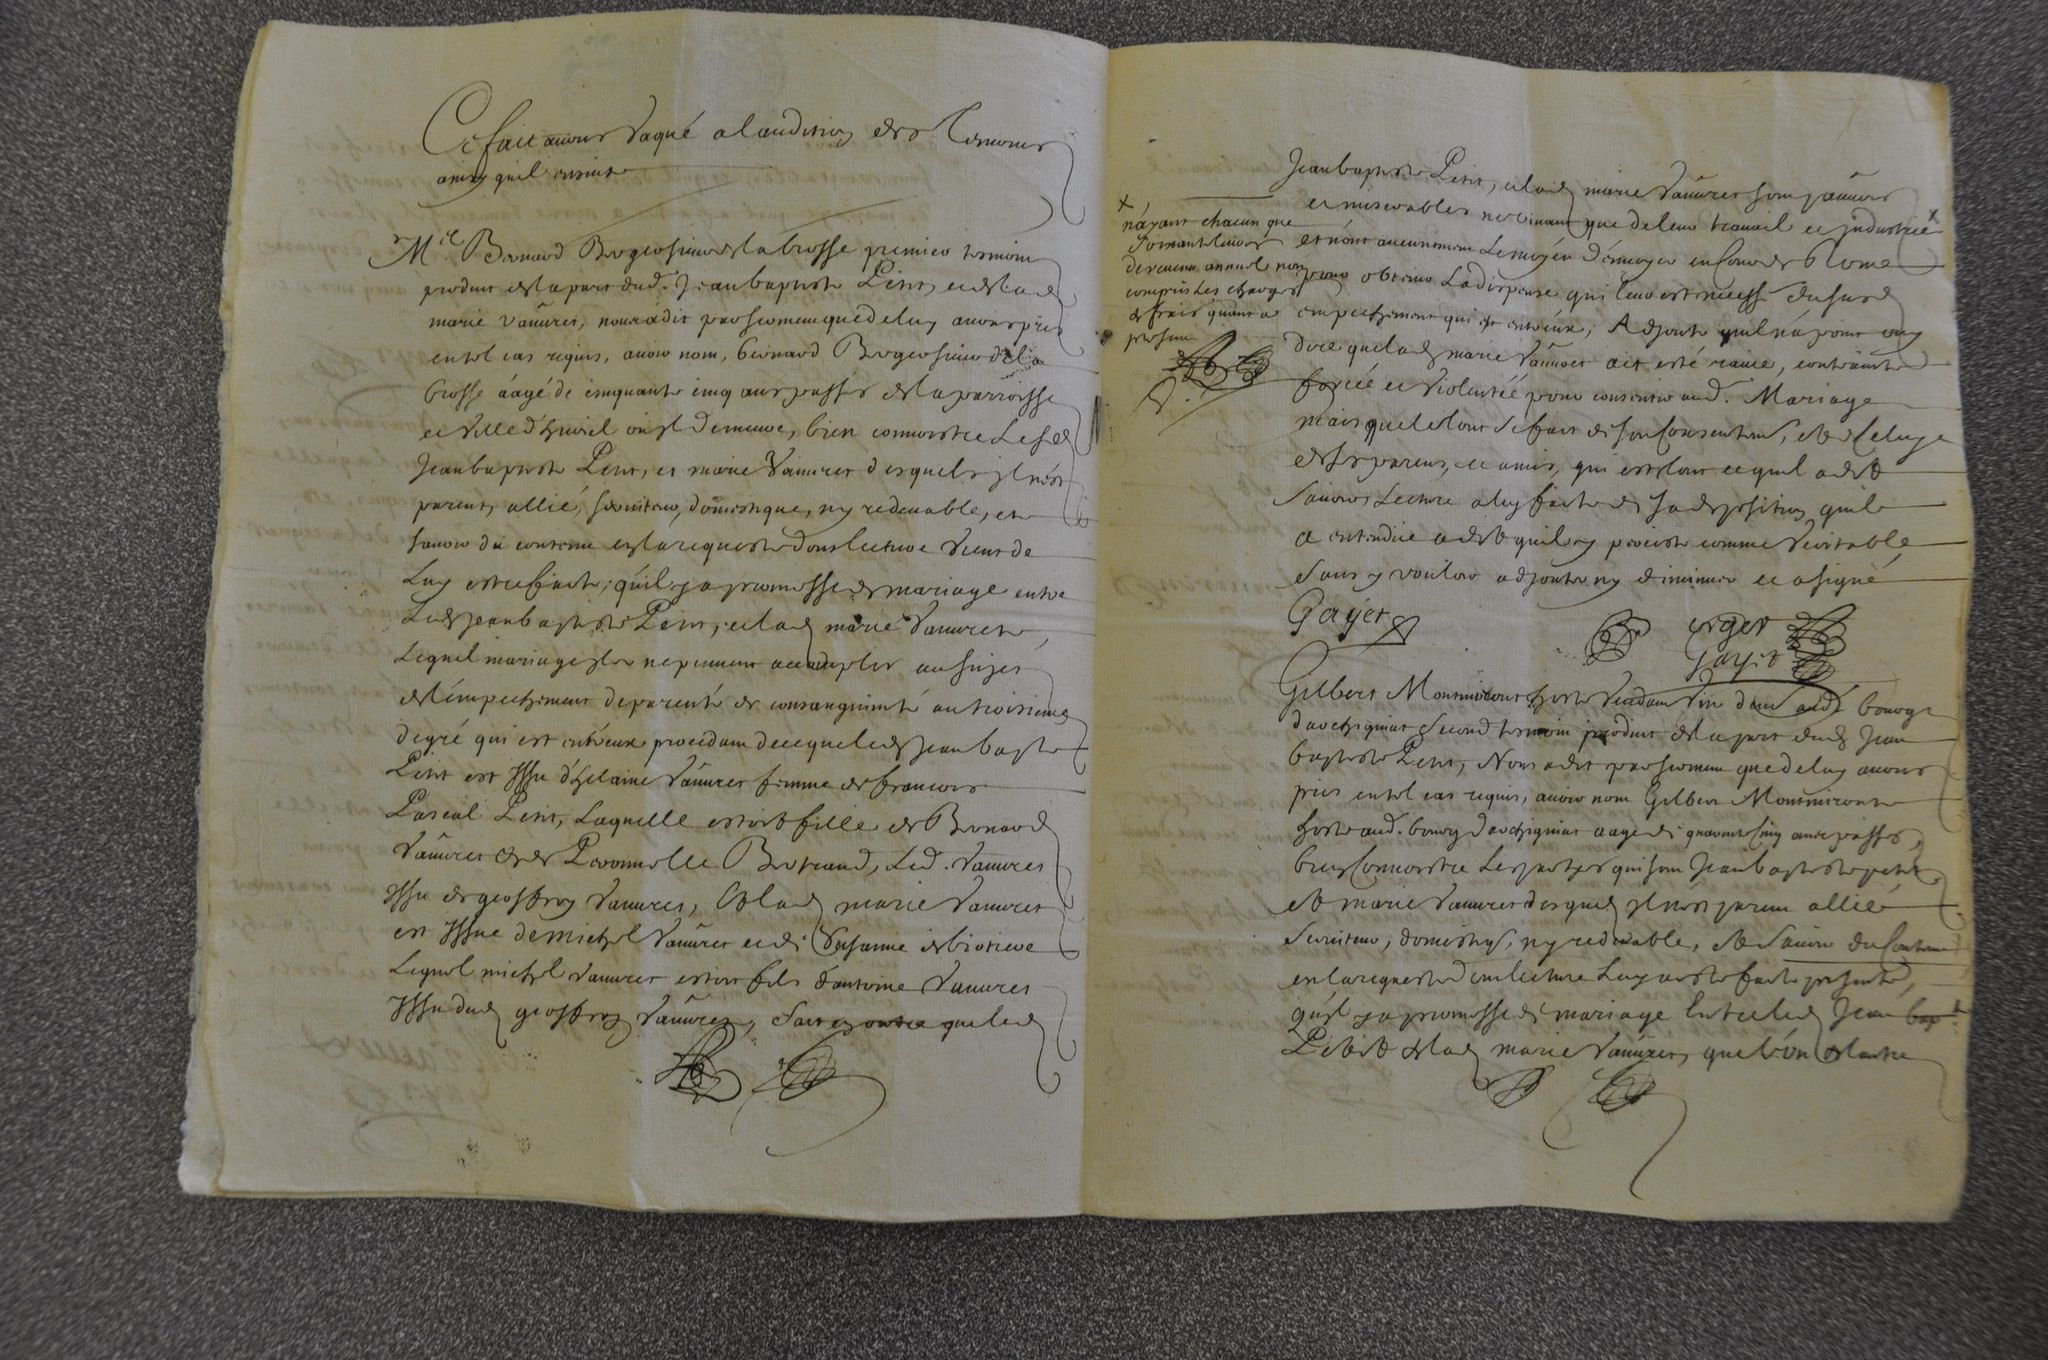 Ce fait avons vaqué a laudition des temoins
ainsy quil ensuit
Mre Bernard Bogrosieur de la brosse premier temoin
produit de la part dud. Jean baptiste Petit, et de lad
marie vauvret, nous a dit par serment que de luy avons pris
en tel cas requis, avoir nom, bernard sieur de la
brosse áagé de cinquante cinq ans passés de la parroisse
et ville d'huriel où il demeure, bien connoistre lesd
Jean baptiste Petit, et marie vauvret desquels il n'est
parent, allié, serviteur, domestique, ny redevable, et
savoir du contenu en la requeste dont lecture vient de
luy estre faite, quil y a promesse de mariage entre
led Jean baptiste Petit, et lad marie vauvret,
lequel mariage ne peuvent accomplir au sujet
de l'émpechement de parenté de consanguinité au troisieme
degré qui est entr'eux procedant de ce que led Jean baptiste
Petit est Issu d'helaine Vauvret femme de francois
Pascal Petit, laquelle estoit fille de Bernard
Vauvret et de Peronnelle Bertrand, led. Vauvret
Issu de geoffroy vauvret, et lad marie vauvret
est Issue de michel vauvret et de Susanne
lequel michel vauvret estoit fils d'antoine vauvret
Issu dud geoffroy vauvret, sait en outre que led
Jean baptiste Petit, et lad marie vauvret sont pauvres
et miserables ne vivant que de leur travail et industrie x
x
náyant chacun que
livres
de revenu annuel non
compris les charges
et frais quant a
present
et n'ont aucunement le moyén d'énvoyer en Cour de Rome
pour obtenir la dispense qui leur est necess. du susd
empechement qui est entr'eux, Adjoute quil n'a point ouy
dire que lad marie vauvret ait esté ravie, contrainte
forcée et violentée pour consentir aud. Mariage
mais que le tout se fait de son consentemt, et de celuy
de ses parens, et amis, qui est tout ce quil a dit
savoir, Lecture a luy faite de sa deposition quil
a entendue a dit quil y persiste comme veritable
sans y vouloir adjouter ny diminuer et a signé
Gayet
Gilbert Montmiront hoste vendant vin aud bourg
d'archignat second temoin produit de la part dud Jean
baptiste Petit, Nous a dit par serment que de luy avons
pris en tel cas requis, avoir nom Gilbert Montmiront
hoste aud. bourg d'archignat aagé de quarente cinq ans passés,
bien connoistre les parties qui sont Jean baptiste petit
et marie vauvret desquels il n'est parent allié
serviteur, domestiq, ny redevable, et savoir du contenu
en la requeste dont lecture luy a esté faite presente,
qu'il y a promesse de mariage Entre led Jean bapt
Petit et lad marie vauvret, que l'ún et lautre